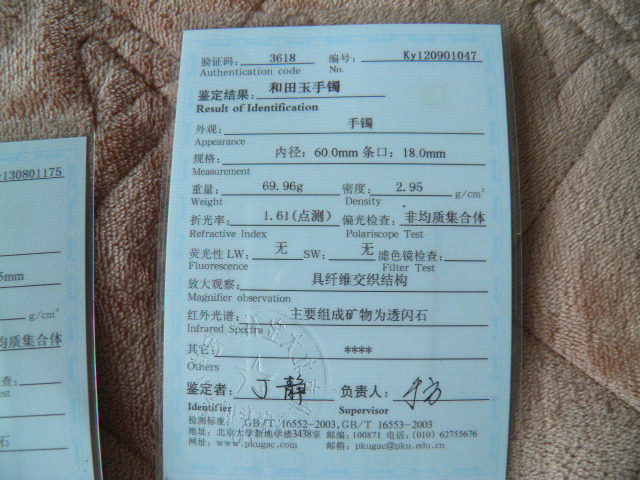 验证码: 3618 编号: Ky120901047
Authentication code No.
鉴定结果: 和田玉手镯
Result of Identification
外观: 手镯
Appearance
规格: 内径: 60.0mm 条口: 18.0mm
Measurement
重量: 69.96g 密度: 2.95 g/cm³
Weight Density
折光率: 1.61(点测) 偏光检查: 非均质集合体
Refractive Index Polariscope Test
荧光性 LW: 无 SW: 无 滤色镜检查:
Fluorescence Filter Test
放大观察: 具纤维交织结构
Magnifier observation
红外光谱: 主要组成矿物为透闪石
Infrared Spectra
其它: ****
Others
鉴定者: 丁静 负责人:
Identifier Supervisor
检测标准: GB/T 16552-2003, GB/T 16553-2003
地址: 北京大学新地学楼3438室 邮编: 100871 电话: (010) 62755676
网址: www.pkugac.com 邮箱: pkugac@pku.edu.cn
y130801175
5mm
g/cm³
匀质集合体
检查:
est
石